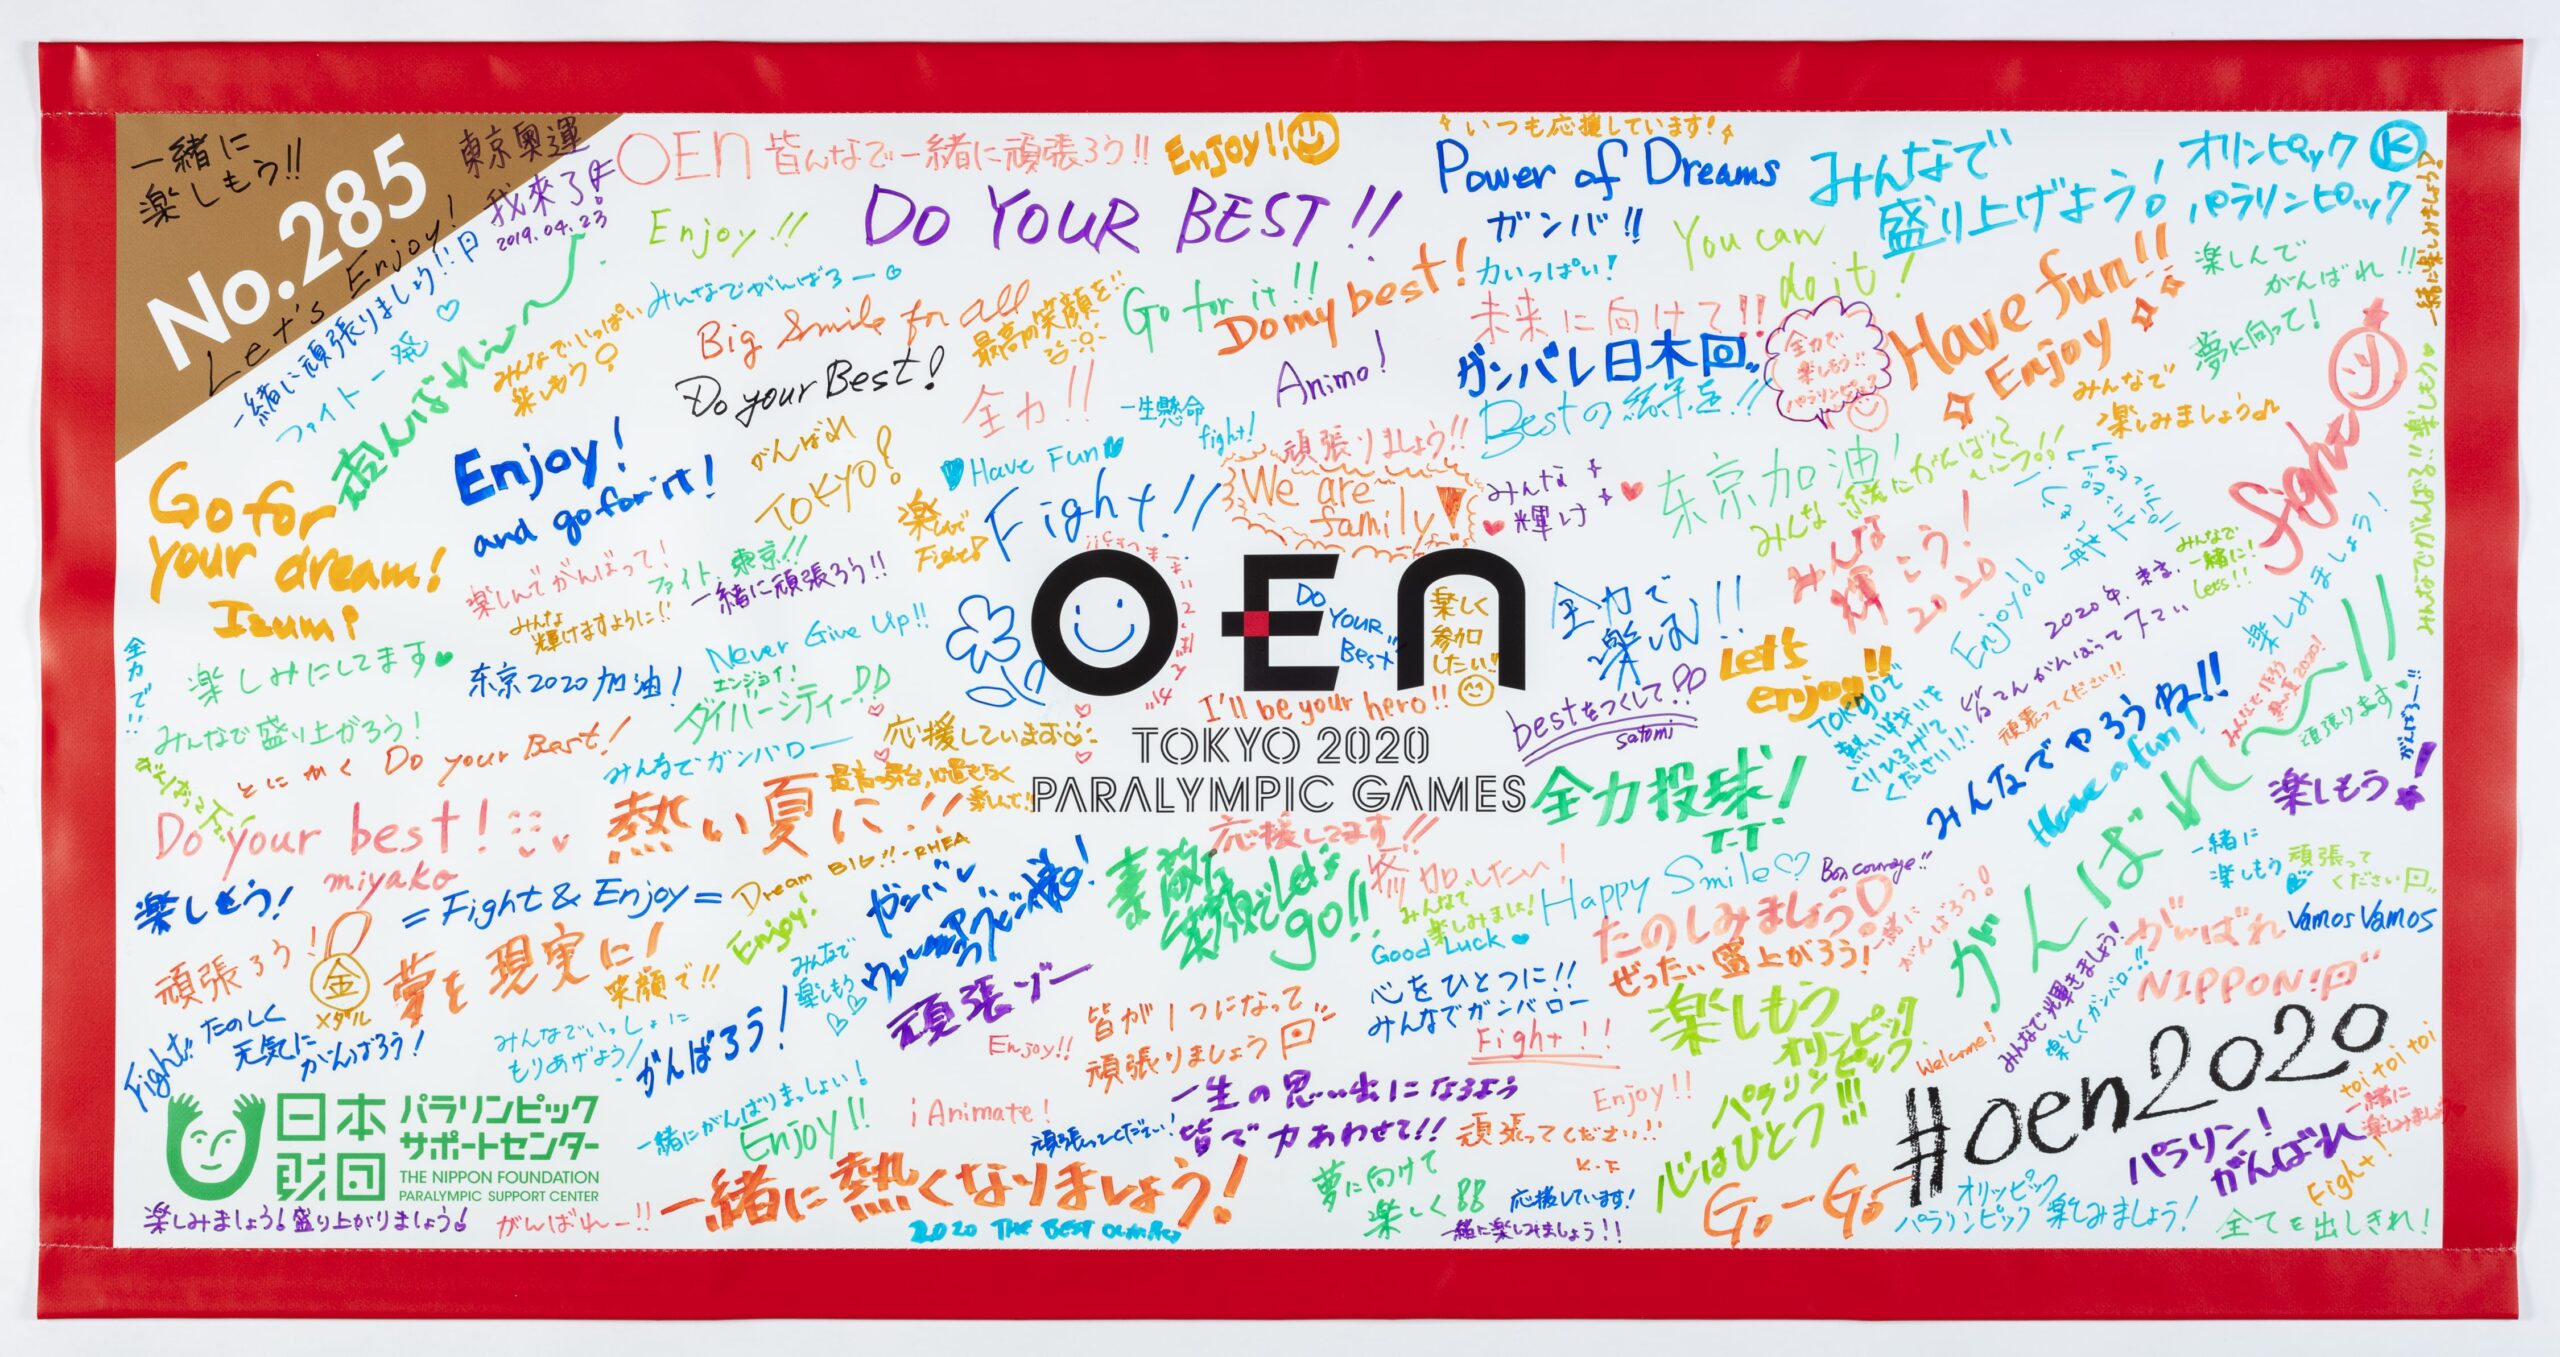 一緒に
楽しもう!!
No.285
Let's Enjoy!
東京奧運
我來了!
2019.04.23
一緒に頑張りましょう!!
ファイト一発
OEn 皆んなで一緒に頑張ろう!!
Enjoy!!
Enjoy!!
DO YOUR BEST!!
いつも応援しています!
Power of Dreams
ガンバ!!
力いっぱい!
You can
do it!
みんなで
盛り上げよう!
オリンピック
パラリンピック
K
みんなでがんばろー
みんなでいっぱい
楽しもう
Big Smile for all
最高の笑顔を!!
Go for it!!
Do my best!
Do your Best!
全力!!
Animo!
未来に向けて!!
ガンバレ日本
Bestの
全力で
楽しもう!!
パラリンピック
Have fun!!
Enjoy
楽しんで
がんばれ!!
夢に向って!
みんなで
楽しみましょう
Go for
your dream!
Izumi
Enjoy!
and go for it!
がんばれ
TOKYO!
一生懸命
fight!
Have Fun
Fight!!
楽しんで
Fight!
頑張りましょう!!
We are
family!
みんな
輝け
东京加油!
みんな
輝こう!
2020
fight
楽しんでがんばって!
ファイト東京!!
一緒に頑張ろう!!
みんな
輝けますように!!
OEn
DO
YOUR
Best
楽しく
参加
したい!!
全力で
楽しむ!!
Let's
enjoy!!
Enjoy!!
みんなで
一緒に!
Let's!!
楽しみましょう!
全力で!!
楽しみにしてます
东京2020加油!
Never Give Up!!
エンジョイ!
ダイバーシティー!!
I'll be your hero!!
bestをつくして!?
satomi
TOKYO 2020
PARALYMPIC GAMES
みんなで盛り上がろう!
とにかく Do your Best!
みんなでガンバロー
応援しています
頑張ってください!!
みんなでやろうね!!
Have a fun!
がんばれー!!
頑張ります
楽しもう!
Do your best!
miyako
熱い夏に!!
応援してます!!
全力投球!
T.T.
楽しもう!
= Fight & Enjoy =
Dream BIG!! -RHEA
Enjoy!
素敵な
笑顔でLet's
go!!
参加したい!
みんなで
楽しみましょ!
Good Luck
Happy Smile
Bon courage!!
たのしみましょう
ぜったい盛上がろう!
一緒に
がんばろう!
一緒に
楽しもう
頑張って
ください
Vamos Vamos
がんばれ
NIPPON!
頑張ろう!
金
メダル
夢を現実に!
笑顔で!!
みんなで
楽しもう
頑張ゾー
心をひとつに!!
みんなでガンバロー
Fight!!
楽しもう
オリンピック
パラリンピック!!!
心はひとつ
みんなで輝きましょう!
楽しくガンバロー!!
Welcome!
Fight!!
たのしく
元気に
がんばろう!
みんなでいっしょに
もりあげよう!
がんばろう!
Enjoy!!
皆が1つになって
頑張りましょう
#oen2020
toi toi toi
一緒に
楽しみましょう
日本
財団
パラリンピック
サポートセンター
THE NIPPON FOUNDATION
PARALYMPIC SUPPORT CENTER
一緒にがんばりまっしょい!
Enjoy!!
i Animate!
頑張ってください!
一生の思い出になるよう
皆で力あわせて!!
Enjoy!!
頑張ってください!!
K.F
パラリン!
がんばれ
Fight!
楽しみましょう!盛り上がりましょう!
がんばれー!!
一緒に熱くなりましょう!
2020 THE BEST
夢に向けて
楽しく
応援しています!
一緒に楽しみましょう!!
Go-Go-
オリンピック
パラリンピック 楽しみましょう!
全てを出しきれ!